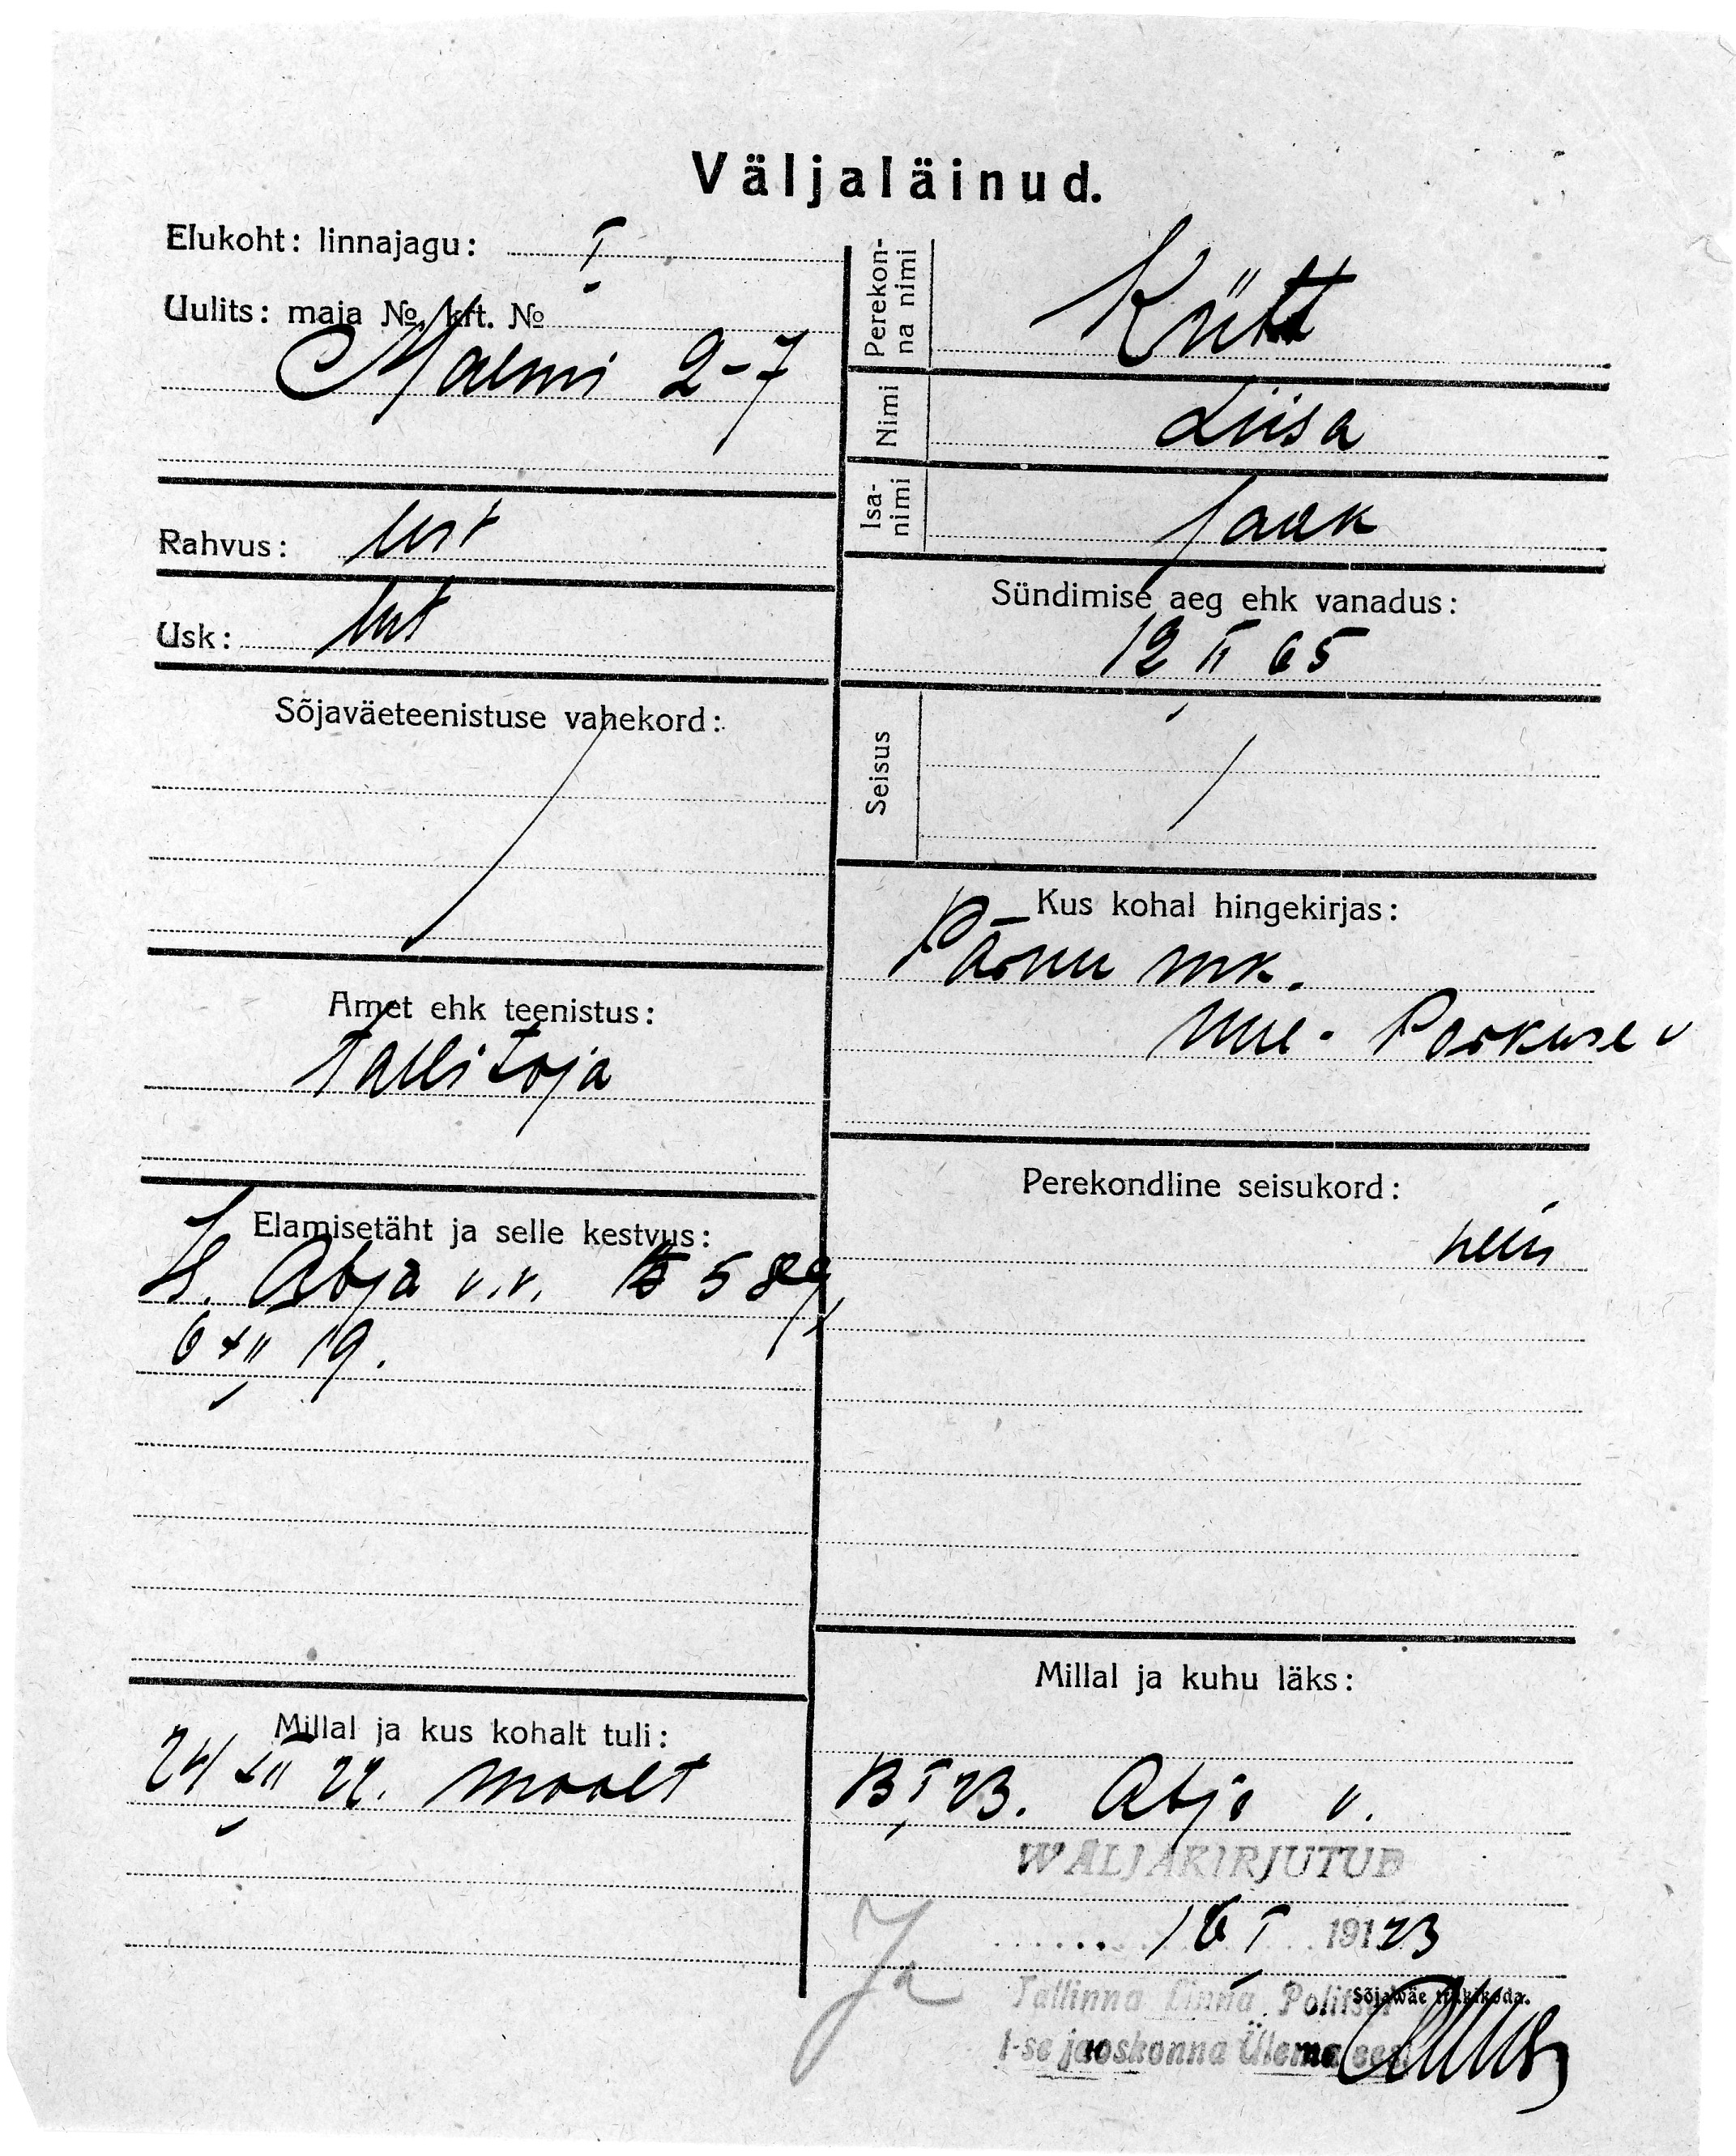 Väljaläinud.
Elukoht: linnajagu: I
Uulits: maja № krt. №
Malmi 2-7
Rahvus: est
Usk: lut
Sõjaväeteenistuse vahekord:
Amet ehk teenistus:
Tallitaja
Elamisetäht ja selle kestvus:
Abja v.v. № 589
6 XII 19.
Millal ja kus kohalt tuli:
24 XII 22. maalt
Perekonna nimi
Kütt
Nimi
Liisa
Isanimi
Jaak
Sündimise aeg ehk vanadus:
12 II 65
Seisus
Kus kohal hingekirjas:
Pärnu mk.
Uue-
Perekondline seisukord:
Millal ja kuhu läks:
13 I 23. Abja v.
WÄLJAKIRJUTUD
16 I 191 23
Ja
Tallinna Linna Politsei
Sõjawäe trükikoda.
1-se jaoskonna Ülema